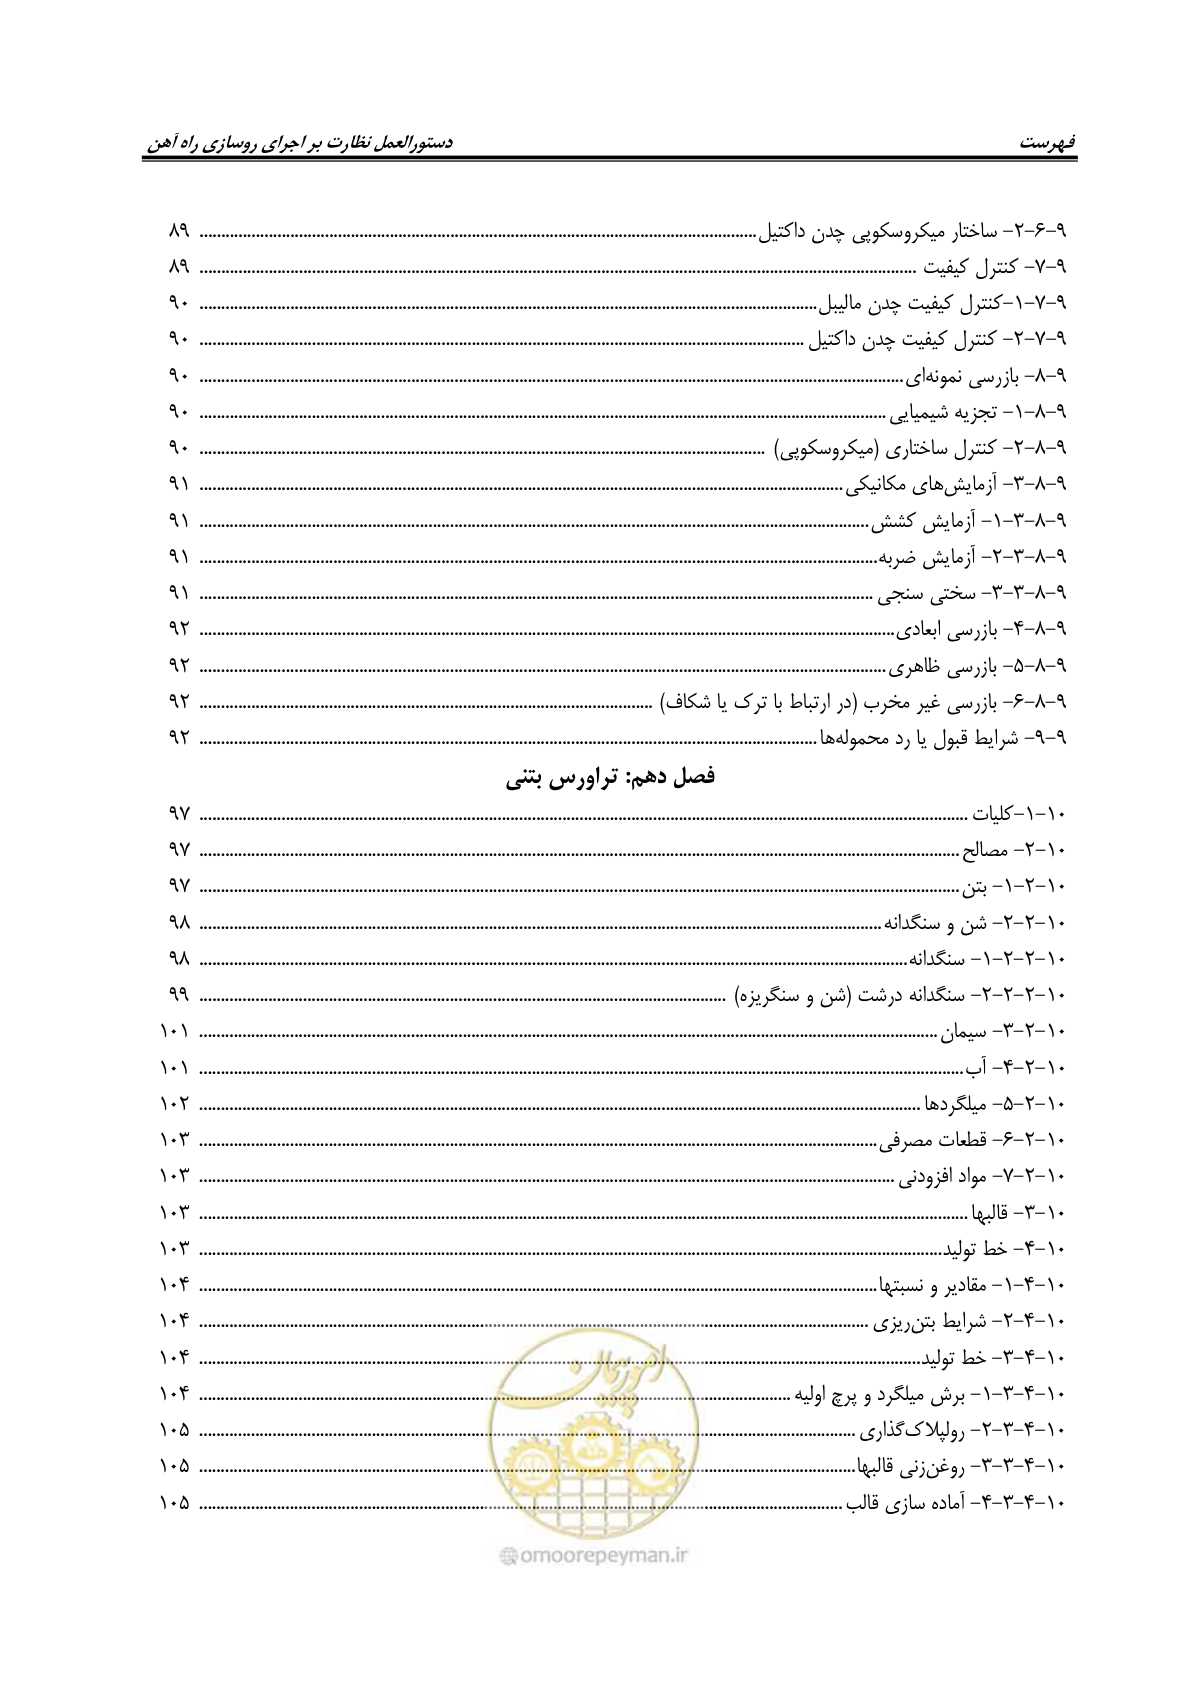 فهرست دستورالعمل نظارت بر اجرای روسازی راه آهن
۹-۶-۲- ساختار میکروسکوپی چدن داکتیل ........ ۸۹
۹-۷- کنترل کیفیت ........ ۸۹
۹-۷-۱-کنترل کیفیت چدن مالیبل ........ ۹۰
۹-۷-۲- کنترل کیفیت چدن داکتیل ........ ۹۰
۹-۸- بازرسی نمونه‌ای ........ ۹۰
۹-۸-۱- تجزیه شیمیایی ........ ۹۰
۹-۸-۲- کنترل ساختاری (میکروسکوپی) ........ ۹۰
۹-۸-۳- آزمایش‌های مکانیکی ........ ۹۱
۹-۸-۳-۱- آزمایش کشش ........ ۹۱
۹-۸-۳-۲- آزمایش ضربه ........ ۹۱
۹-۸-۳-۳- سختی سنجی ........ ۹۱
۹-۸-۴- بازرسی ابعادی ........ ۹۲
۹-۸-۵- بازرسی ظاهری ........ ۹۲
۹-۸-۶- بازرسی غیر مخرب (در ارتباط با ترک یا شکاف) ........ ۹۲
۹-۹- شرایط قبول یا رد محموله‌ها ........ ۹۲
فصل دهم: تراورس بتنی
۱۰-۱-کلیات ........ ۹۷
۱۰-۲- مصالح ........ ۹۷
۱۰-۲-۱- بتن ........ ۹۷
۱۰-۲-۲- شن و سنگدانه ........ ۹۸
۱۰-۲-۲-۱- سنگدانه ........ ۹۸
۱۰-۲-۲-۲- سنگدانه درشت (شن و سنگریزه) ........ ۹۹
۱۰-۲-۳- سیمان ........ ۱۰۱
۱۰-۲-۴- آب ........ ۱۰۱
۱۰-۲-۵- میلگردها ........ ۱۰۲
۱۰-۲-۶- قطعات مصرفی ........ ۱۰۳
۱۰-۲-۷- مواد افزودنی ........ ۱۰۳
۱۰-۳- قالبها ........ ۱۰۳
۱۰-۴- خط تولید ........ ۱۰۳
۱۰-۴-۱- مقادیر و نسبتها ........ ۱۰۴
۱۰-۴-۲- شرایط بتن‌ریزی ........ ۱۰۴
۱۰-۴-۳- خط تولید ........ ۱۰۴
۱۰-۴-۳-۱- برش میلگرد و پرچ اولیه ........ ۱۰۴
۱۰-۴-۳-۲- رولپلاک‌گذاری ........ ۱۰۵
۱۰-۴-۳-۳- روغن‌زنی قالبها ........ ۱۰۵
۱۰-۴-۳-۴- آماده سازی قالب ........ ۱۰۵
امور پیمان
@omoorepeyman.ir